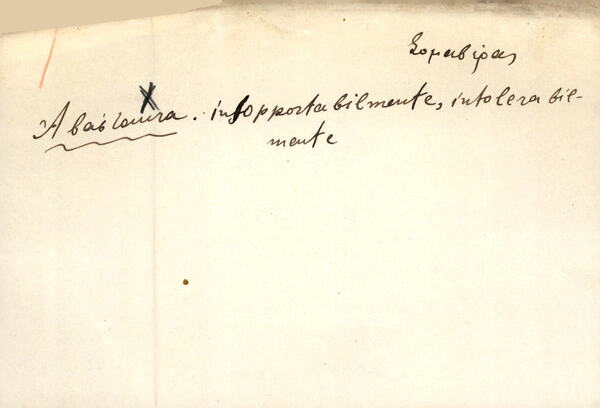 Σομαβέρας
Ἀβάσταχτα. insopportabilmente, intolerabil-
mente